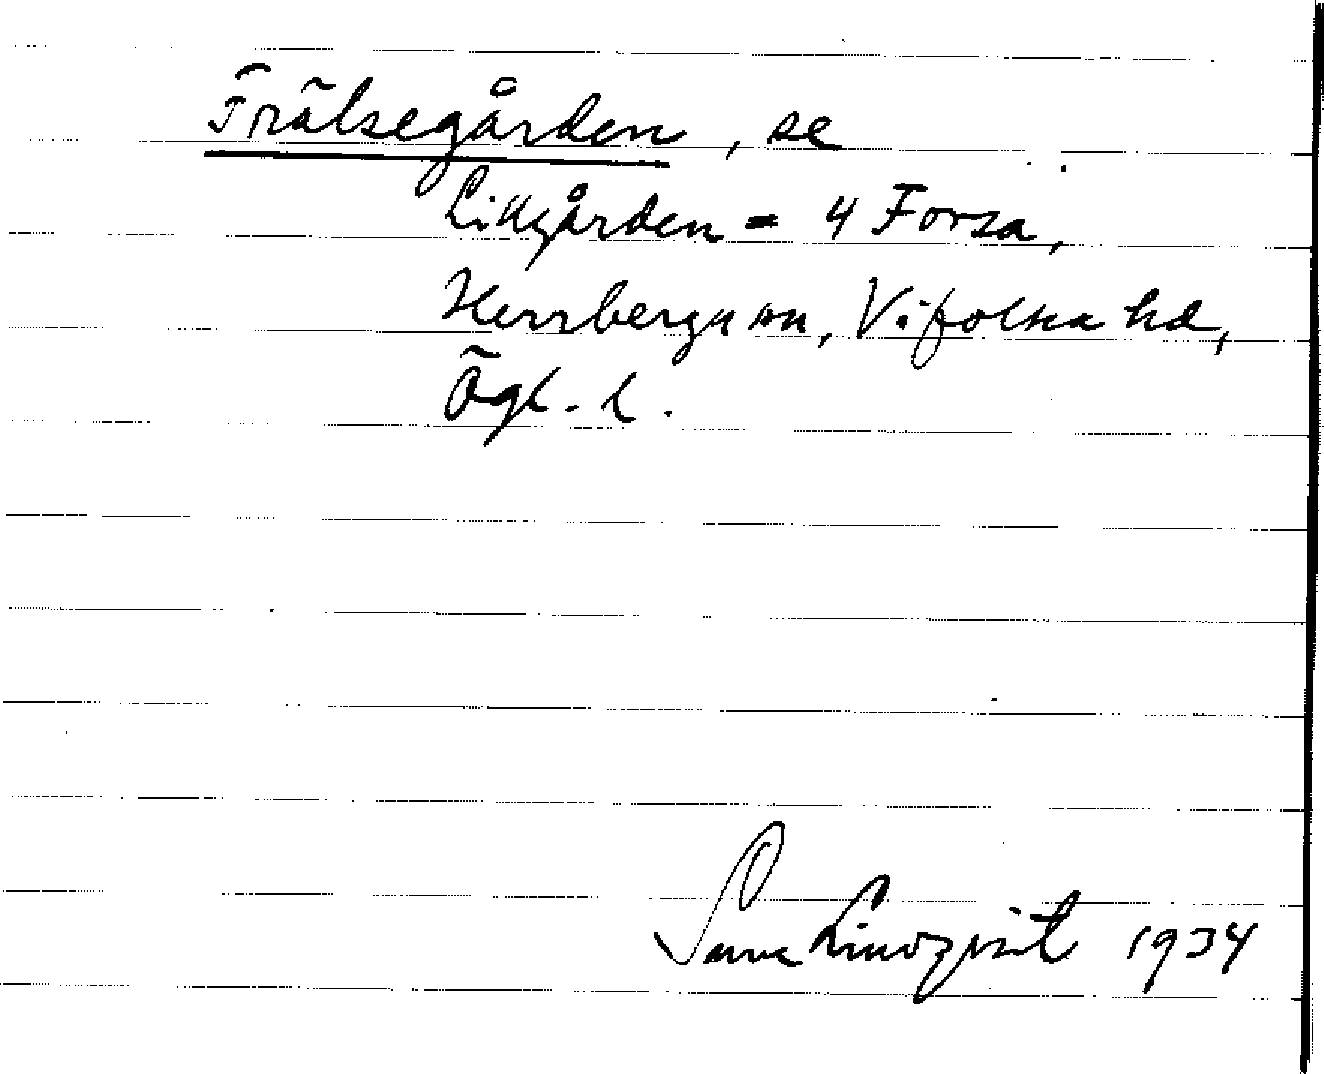 Frälsegården, se
Lillgården = 4 Forsa,
Herrberga sn, Vifolka hd,
Ögl. l.
Sune Lindqvist 1934